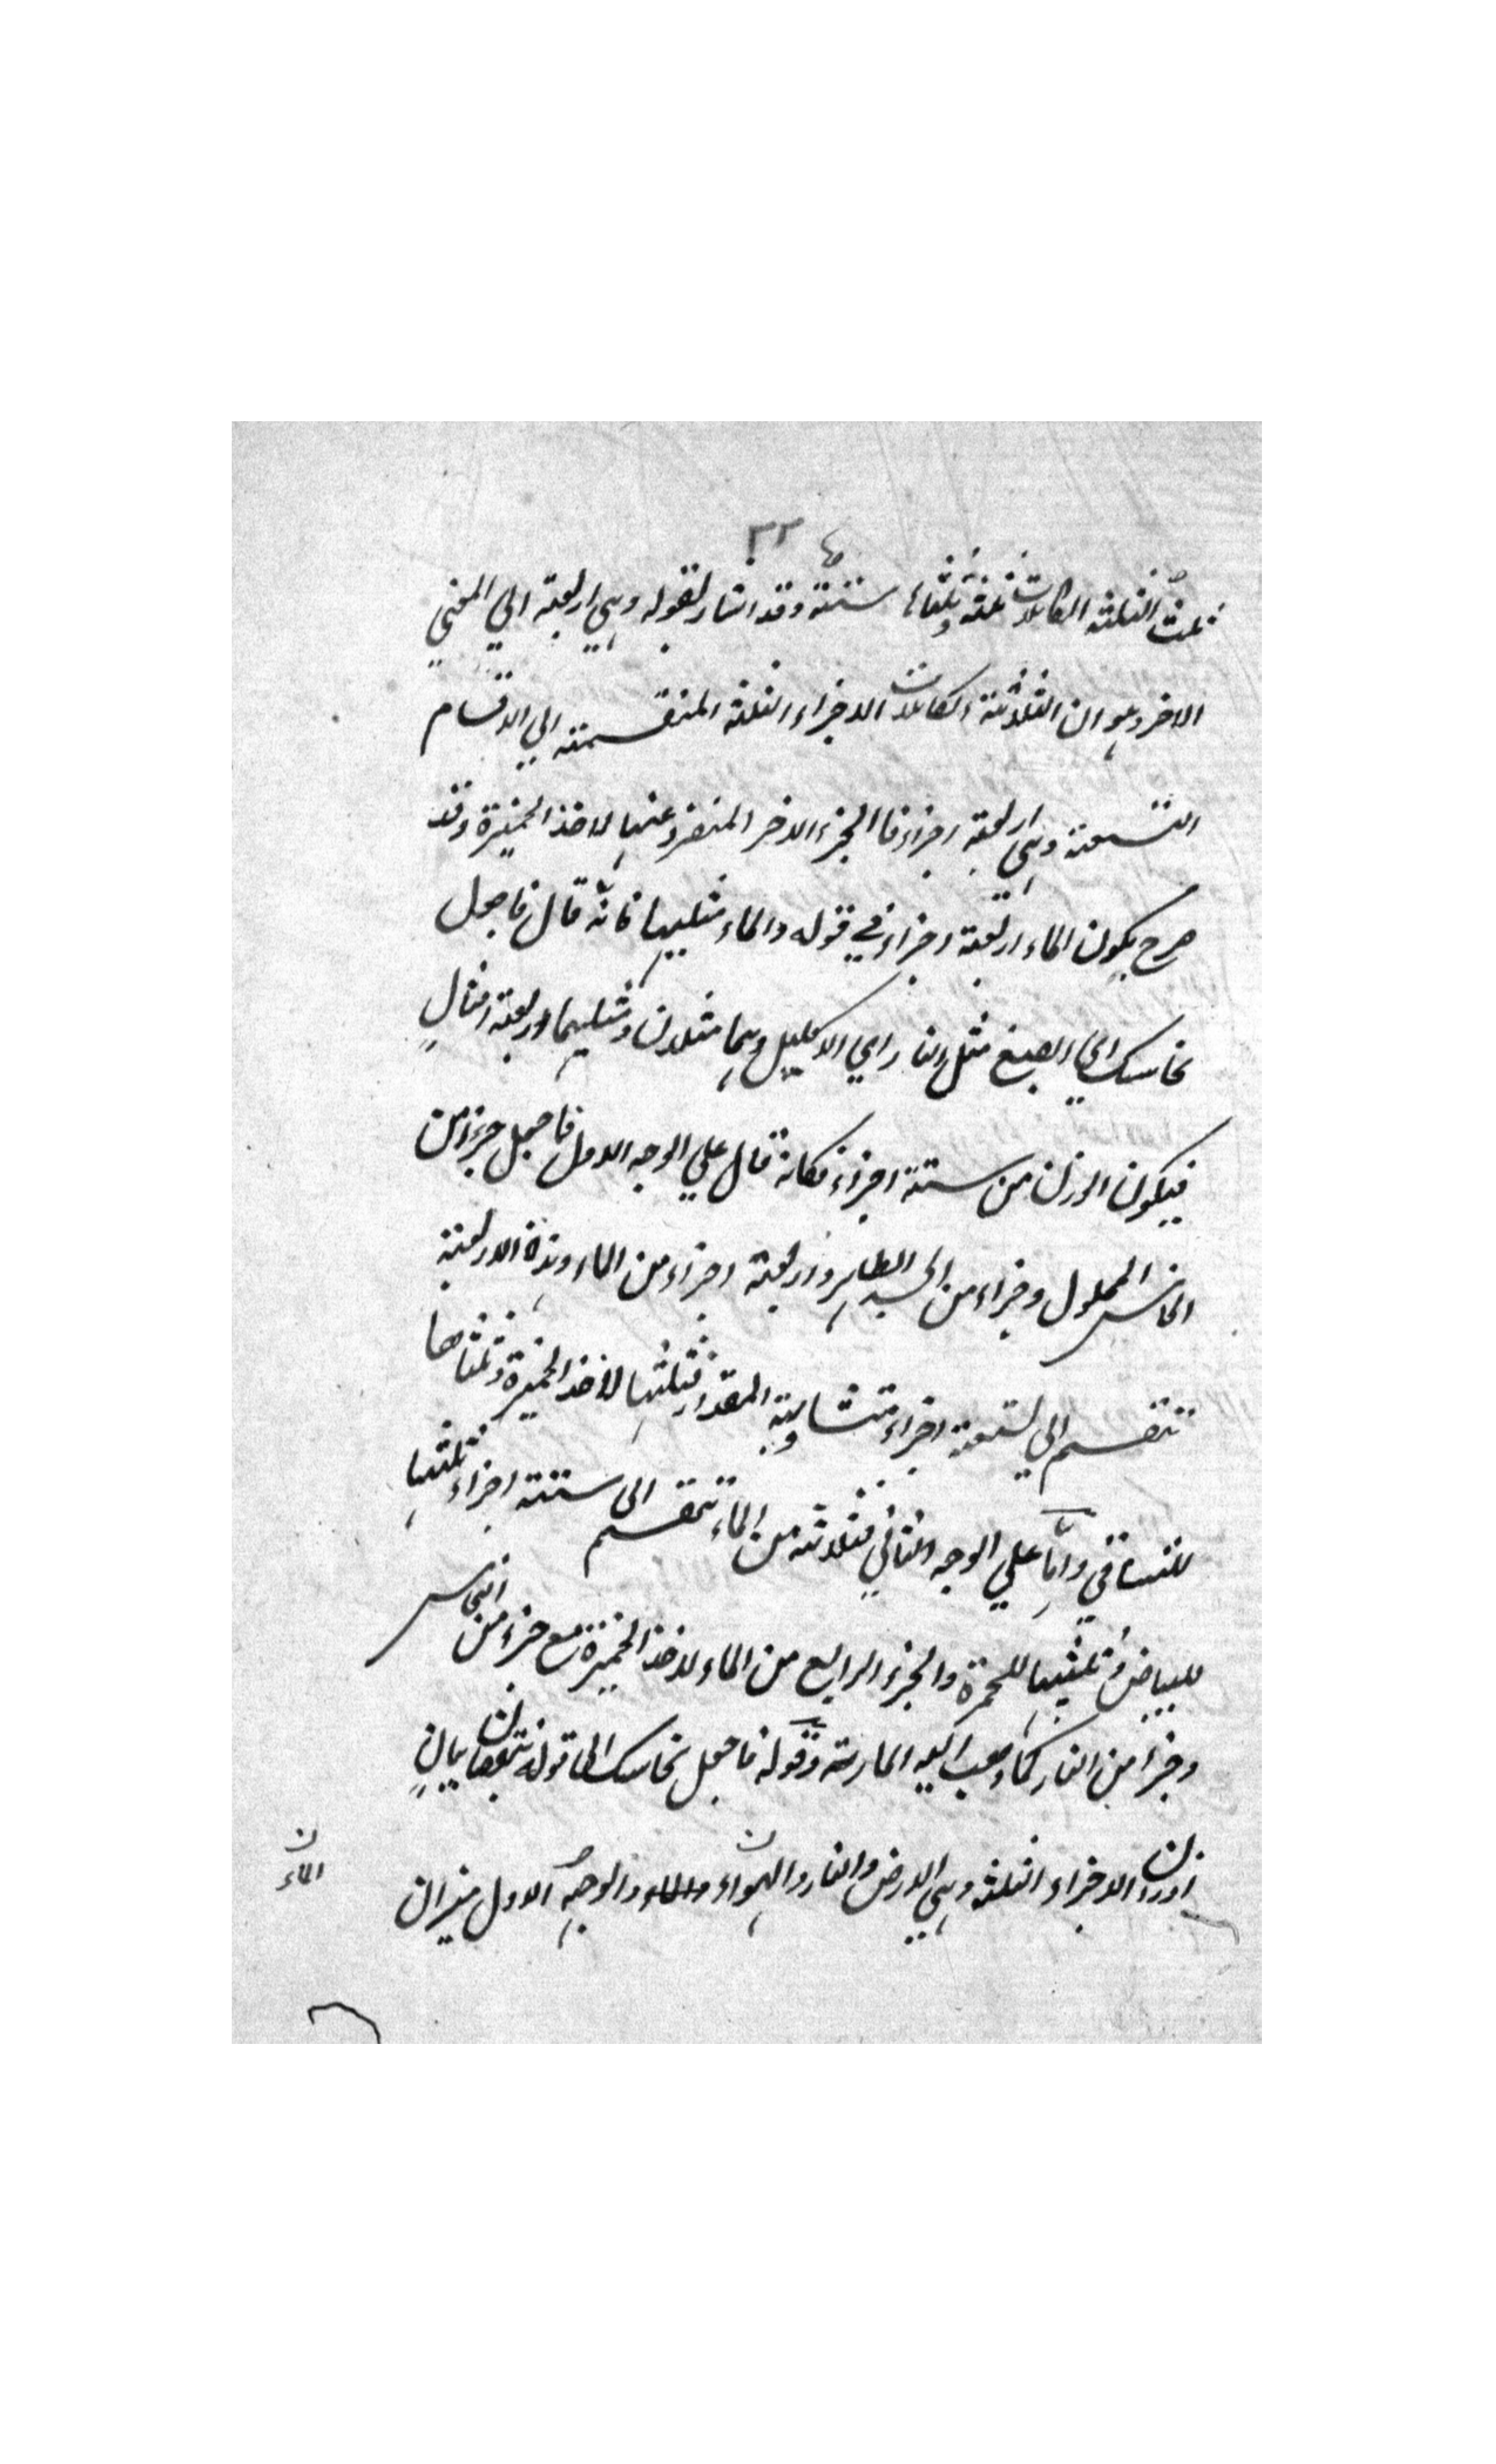 ٣٣
ثلث الثلثة الكاملات ثلثة وثلثاها ستة وقد اشار لقوله وهي اربعة الي المعني
الاخر وهو ان الثلاثة الكاملات الاجزاء الثلثة المنقسمة الي الاقسام
التسعة وهي اربعة اجزاء فا الجزء الاخر المنفرد عنها لاخذ الخميرة وقد
صرح بكون الماء اربعة اجزاء في قوله والماء مثليها فانه قال فاجعل
نحاسك اي الصبغ مثل النار اي الاكليل وهما مثلان ومثليهما اربعة امثالٍ
فيكون الوزن من ستة اجزاء فكانه قال علي الوجه الاول فاجعل جزء من
النحاس المحلول وجزاء من الجسد الطاهر واربعة اجزاء من الماء وهذه الاربعة
تنقسم الي تسعة اجزاء متساوية المقدار فثلثها لاخذ الخميرة وثلثاها
للتساقي وامّا علي الوجه الثاني فثلاثة من الماء تنقسم الى ستة اجزاء ثلثها
للبياض وثلثيها للحمرة والجزء الرابع من الماء لاخذ الخميرة مع جزء من النحاس
وجزأ من النار كما ذهب اليه المارية وقوله فاجعل نحاسك الى قوله بيانٍ
اوزان الاجزاء الثلثة وهي الارض والنار والهواء والماء والوجه الاول ميزان
الماء